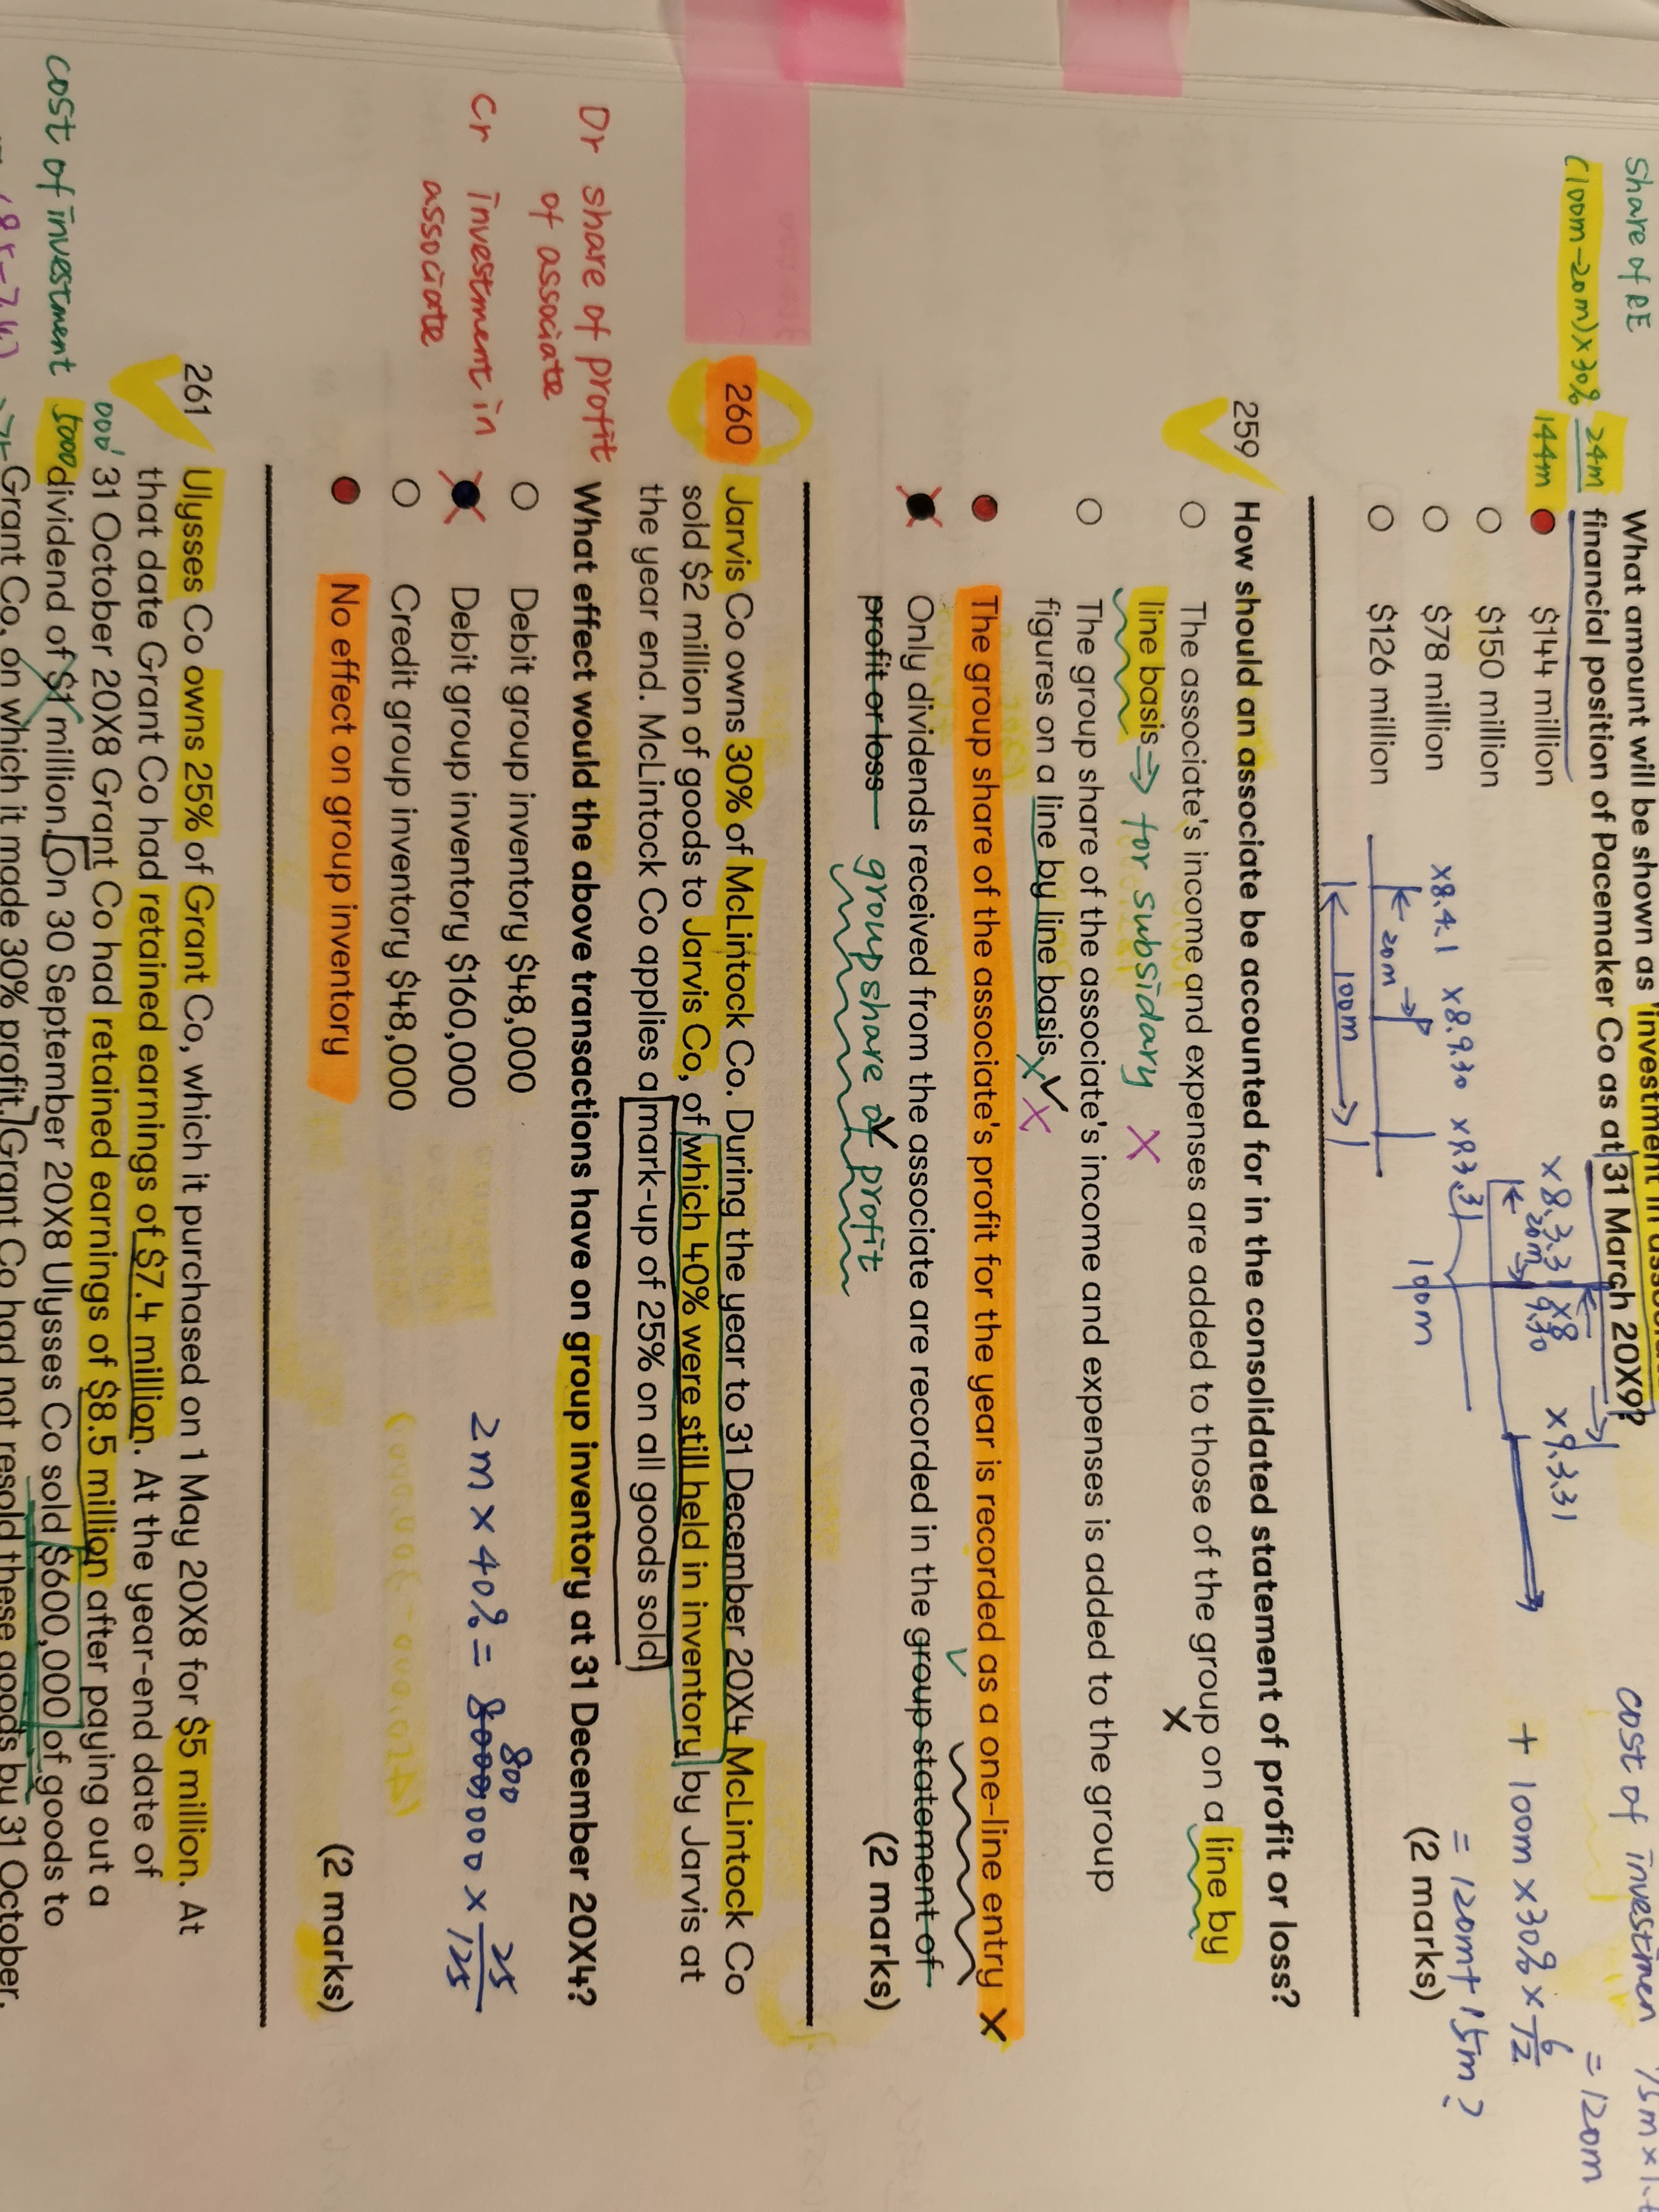 share of RE
(100m-20m)×30%
24m
144m
What amount will be shown as 'investment in
financial position of Pacemaker Co as at 31 March 20X9?
$144 million
$150 million
$78 million
$126 million
×8.4.1 ×8.9.30
20m
100m
×8.3.31 ×8 9.30 ×9.3.31
20m
100m
cost of investmen
= 120m
+ 100m × 30% × 6/12
= 120m + 15m?
(2 marks)
259 How should an associate be accounted for in the consolidated statement of profit or loss?
The associate's income and expenses are added to those of the group on a line by
line basis ⇒ for subsidary X
The group share of the associate's income and expenses is added to the group
figures on a line by line basis
The group share of the associate's profit for the year is recorded as a one-line entry X
Only dividends received from the associate are recorded in the group statement of
profit or loss group share of profit
(2 marks)
260 Jarvis Co owns 30% of McLintock Co. During the year to 31 December 20X4 McLintock Co
sold $2 million of goods to Jarvis Co, of which 40% were still held in inventory by Jarvis at
the year end. McLintock Co applies a mark-up of 25% on all goods sold
What effect would the above transactions have on group inventory at 31 December 20X4?
Dr share of profit
of associate
Cr investment in
associate
Debit group inventory $48,000
Debit group inventory $160,000
Credit group inventory $48,000
No effect on group inventory
800
2m × 40% = 8000000 × 25/125
(2 marks)
261 Ulysses Co owns 25% of Grant Co, which it purchased on 1 May 20X8 for $5 million. At
that date Grant Co had retained earnings of $7.4 million. At the year-end date of
000' 31 October 20X8 Grant Co had retained earnings of $8.5 million after paying out a
cost of investment 5000 dividend of $1 million. On 30 September 20X8 Ulysses Co sold $600,000 of goods to
Grant Co, on which it made 30% profit. Grant Co had not resold these goods by 31 October.